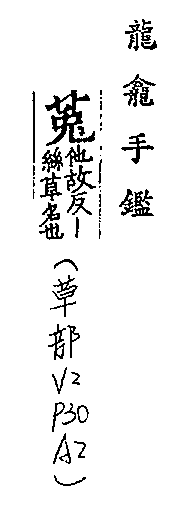 龍龕手鑑
菟他故反丨
絲草名也
(草部
V2
P30
A2)